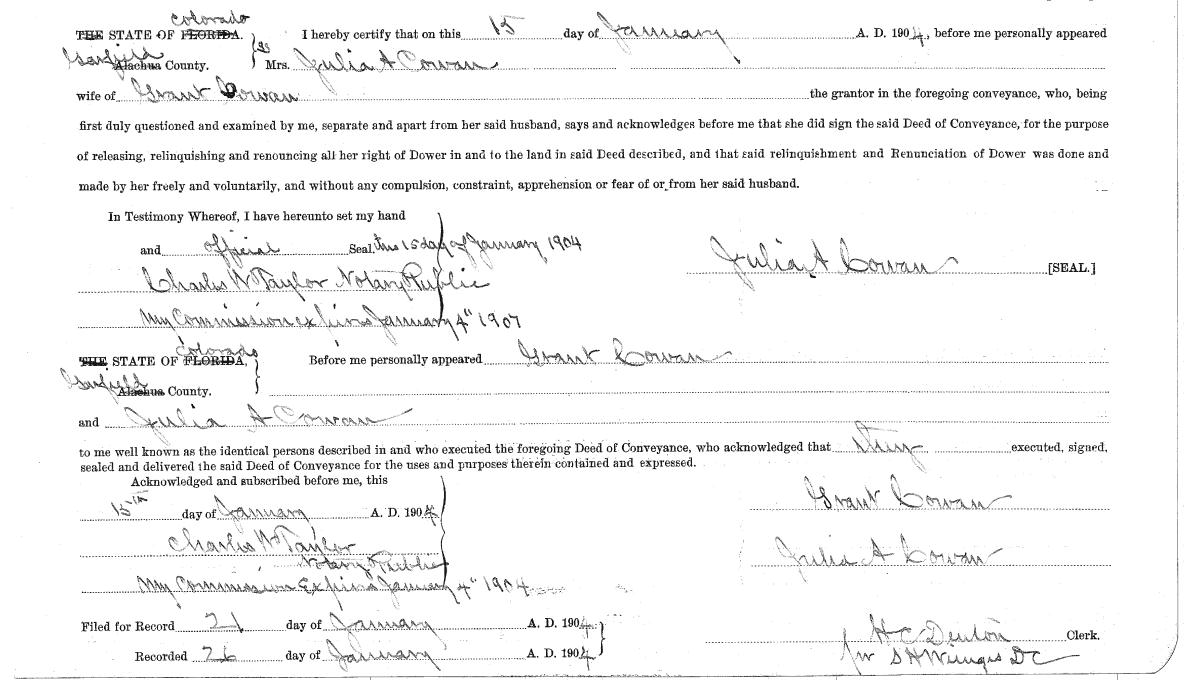 Colorado
THE STATE OF FLORIDA. I hereby certify that on this 15 day of January A. D. 1904, before me personally appeared
Garfield
Alachua County. } ss Mrs. Julia A Cowan
wife of Grant Cowan the grantor in the foregoing conveyance, who, being
first duly questioned and examined by me, separate and apart from her said husband, says and acknowledges before me that she did sign the said Deed of Conveyance, for the purpose
of releasing, relinquishing and renouncing all her right of Dower in and to the land in said Deed described, and that said relinquishment and Renunciation of Dower was done and
made by her freely and voluntarily, and without any compulsion, constraint, apprehension or fear of or from her said husband.
In Testimony Whereof, I have hereunto set my hand
and official Seal, this 15 day of January, 1904
Julia A Cowan [SEAL.]
Charles W Taylor Notary Public
My Commission expires January 4" 1907
Colorado
THE STATE OF FLORIDA, Before me personally appeared Grant Cowan
Garfield
Alachua County.
and Julia A Cowan
to me well known as the identical persons described in and who executed the foregoing Deed of Conveyance, who acknowledged that they executed, signed,
sealed and delivered the said Deed of Conveyance for the uses and purposes therein contained and expressed.
Acknowledged and subscribed before me, this
15th day of January A. D. 1904
Grant Cowan
Charles W Taylor
Notary Public
Julia A Cowan
My Commission Expires January 4" 1904
Filed for Record 21 day of January A. D. 1904
H C Denton Clerk.
Recorded 26 day of January A. D. 1904
per S H Wienges DC